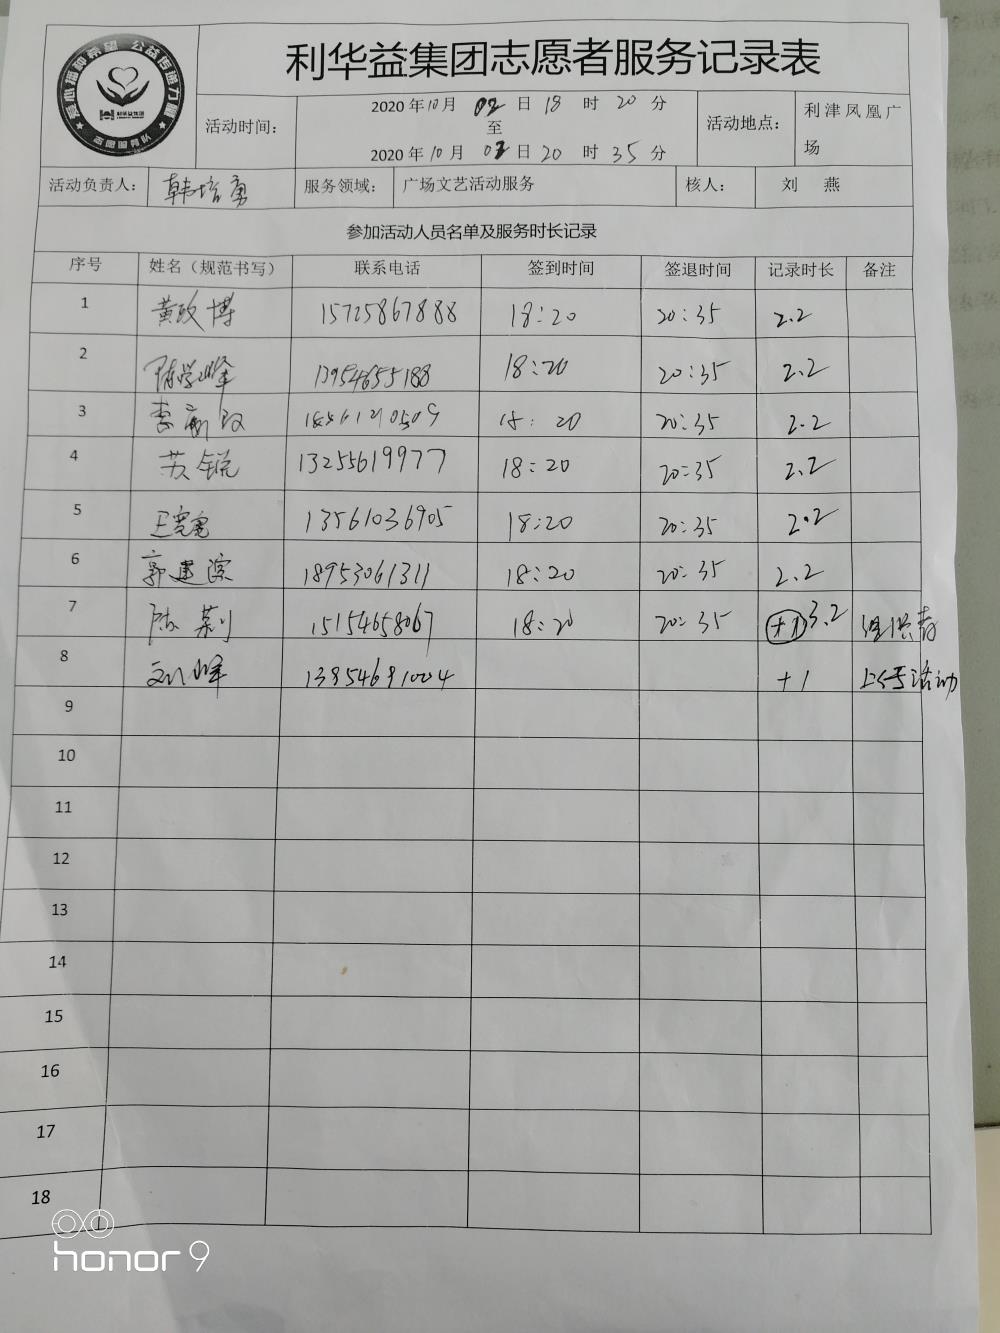 爱心播种希望 公益传递力量
利华益集团
利华益集团志愿者服务记录表
活动时间：
2020 年 10 月 02 日 18 时 20 分
至
2020 年 10 月 02 日 20 时 35 分
活动地点：
利津凤凰广
场
活动负责人： 韩培勇 服务领域： 广场文艺活动服务 核人： 刘 燕
参加活动人员名单及服务时长记录
序号 姓名（规范书写） 联系电话 签到时间 签退时间 记录时长 备注
1 黄政博 15725867888 18:20 20:35 2.2
2 陈学峰 13954655188 18:20 20:35 2.2
3 李 18:20 20:35 2.2
4 苏锐 13255619977 18:20 20:35 2.2
5 王亮亮 13561036905 18:20 20:35 2.2
6 郭建滨 18953061311 18:20 20:35 2.2
7 陈莉 15154658067 18:20 20:35 +1 3.2
8 刘峰 13854691004 +1 上传活动
9
10
11
12
13
14
15
16
17
18
honor 9